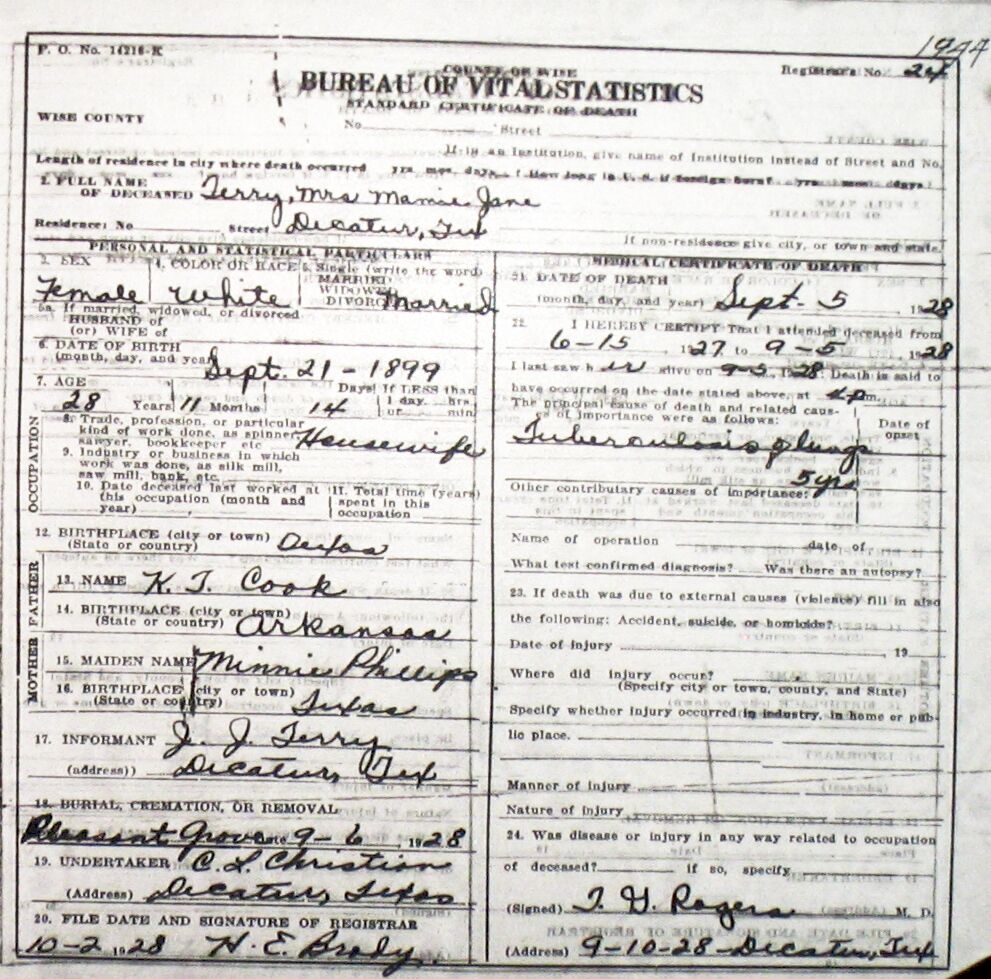 1944
F. O. No. 14216-K
COUNTY OF WISE
Registrar's No. 24
BUREAU OF VITAL STATISTICS
STANDARD CERTIFICATE OF DEATH
WISE COUNTY
No. Street
If in an Institution, give name of Institution instead of Street and No.
Length of residence in city where death occurred yrs. mos. days. How long in U. S. if foreign born? yrs. mos. days
1. FULL NAME OF DECEASED Terry, Mrs Mamie Jane
Residence: No. Street Decatur, Tex
If non-residence give city, or town and state.
PERSONAL AND STATISTICAL PARTICULARS
3. SEX Female
4. COLOR OR RACE White
5. Single (write the word) MARRIED WIDOWED DIVORCED Married
5a. If married, widowed, or divorced
HUSBAND of
(or) WIFE of
6. DATE OF BIRTH
(month, day, and year) Sept. 21 - 1899
7. AGE 28 Years 11 Months 14 Days If LESS than 1 day hrs. or min.
OCCUPATION
8. Trade, profession, or particular
kind of work done, as spinner
sawyer, bookkeeper etc Housewife
9. Industry or business in which
work was done, as silk mill,
saw mill, bank, etc.
10. Date deceased last worked at
this occupation (month and
year)
11. Total time (years)
spent in this
occupation
12. BIRTHPLACE (city or town)
(State or country) Texas
FATHER
13. NAME K. T. Cook
14. BIRTHPLACE (city or town)
(State or country) Arkansas
MOTHER
15. MAIDEN NAME Minnie Phillips
16. BIRTHPLACE (city or town)
(State or country) Texas
17. INFORMANT J. J. Terry
(address)) Decatur, Tex
18. BURIAL, CREMATION, OR REMOVAL
Pleasant Grove date 9-6, 1928
19. UNDERTAKER C. L. Christian
(Address) Decatur, Texas
20. FILE DATE AND SIGNATURE OF REGISTRAR
10-2 1928 H. E. Brady.
MEDICAL CERTIFICATE OF DEATH
21. DATE OF DEATH
(month, day, and year) Sept. 5, 1928
22. I HEREBY CERTIFY That I attended deceased from
6-15, 1927 to 9-5, 1928
I last saw her alive on 9-5, 1928. Death is said to
have occurred on the date stated above, at 4 p m.
The principal cause of death and related causes
of importance were as follows:
Date of
onset
Tuberculosis of lungs
5 yrs
Other contributory causes of importance:
Name of operation date of
What test confirmed diagnosis? Was there an autopsy?
23. If death was due to external causes (violence) fill in also
the following: Accident, suicide, or homicide?
Date of injury 19
Where did injury occur?
(Specify city or town, county, and State)
Specify whether injury occurred in industry, in home or pub-
lic place.
Manner of injury
Nature of injury
24. Was disease or injury in any way related to occupation
of deceased? if so, specify
(Signed) T. G. Rogers M. D.
(Address) 9-10-28 Decatur, Tex